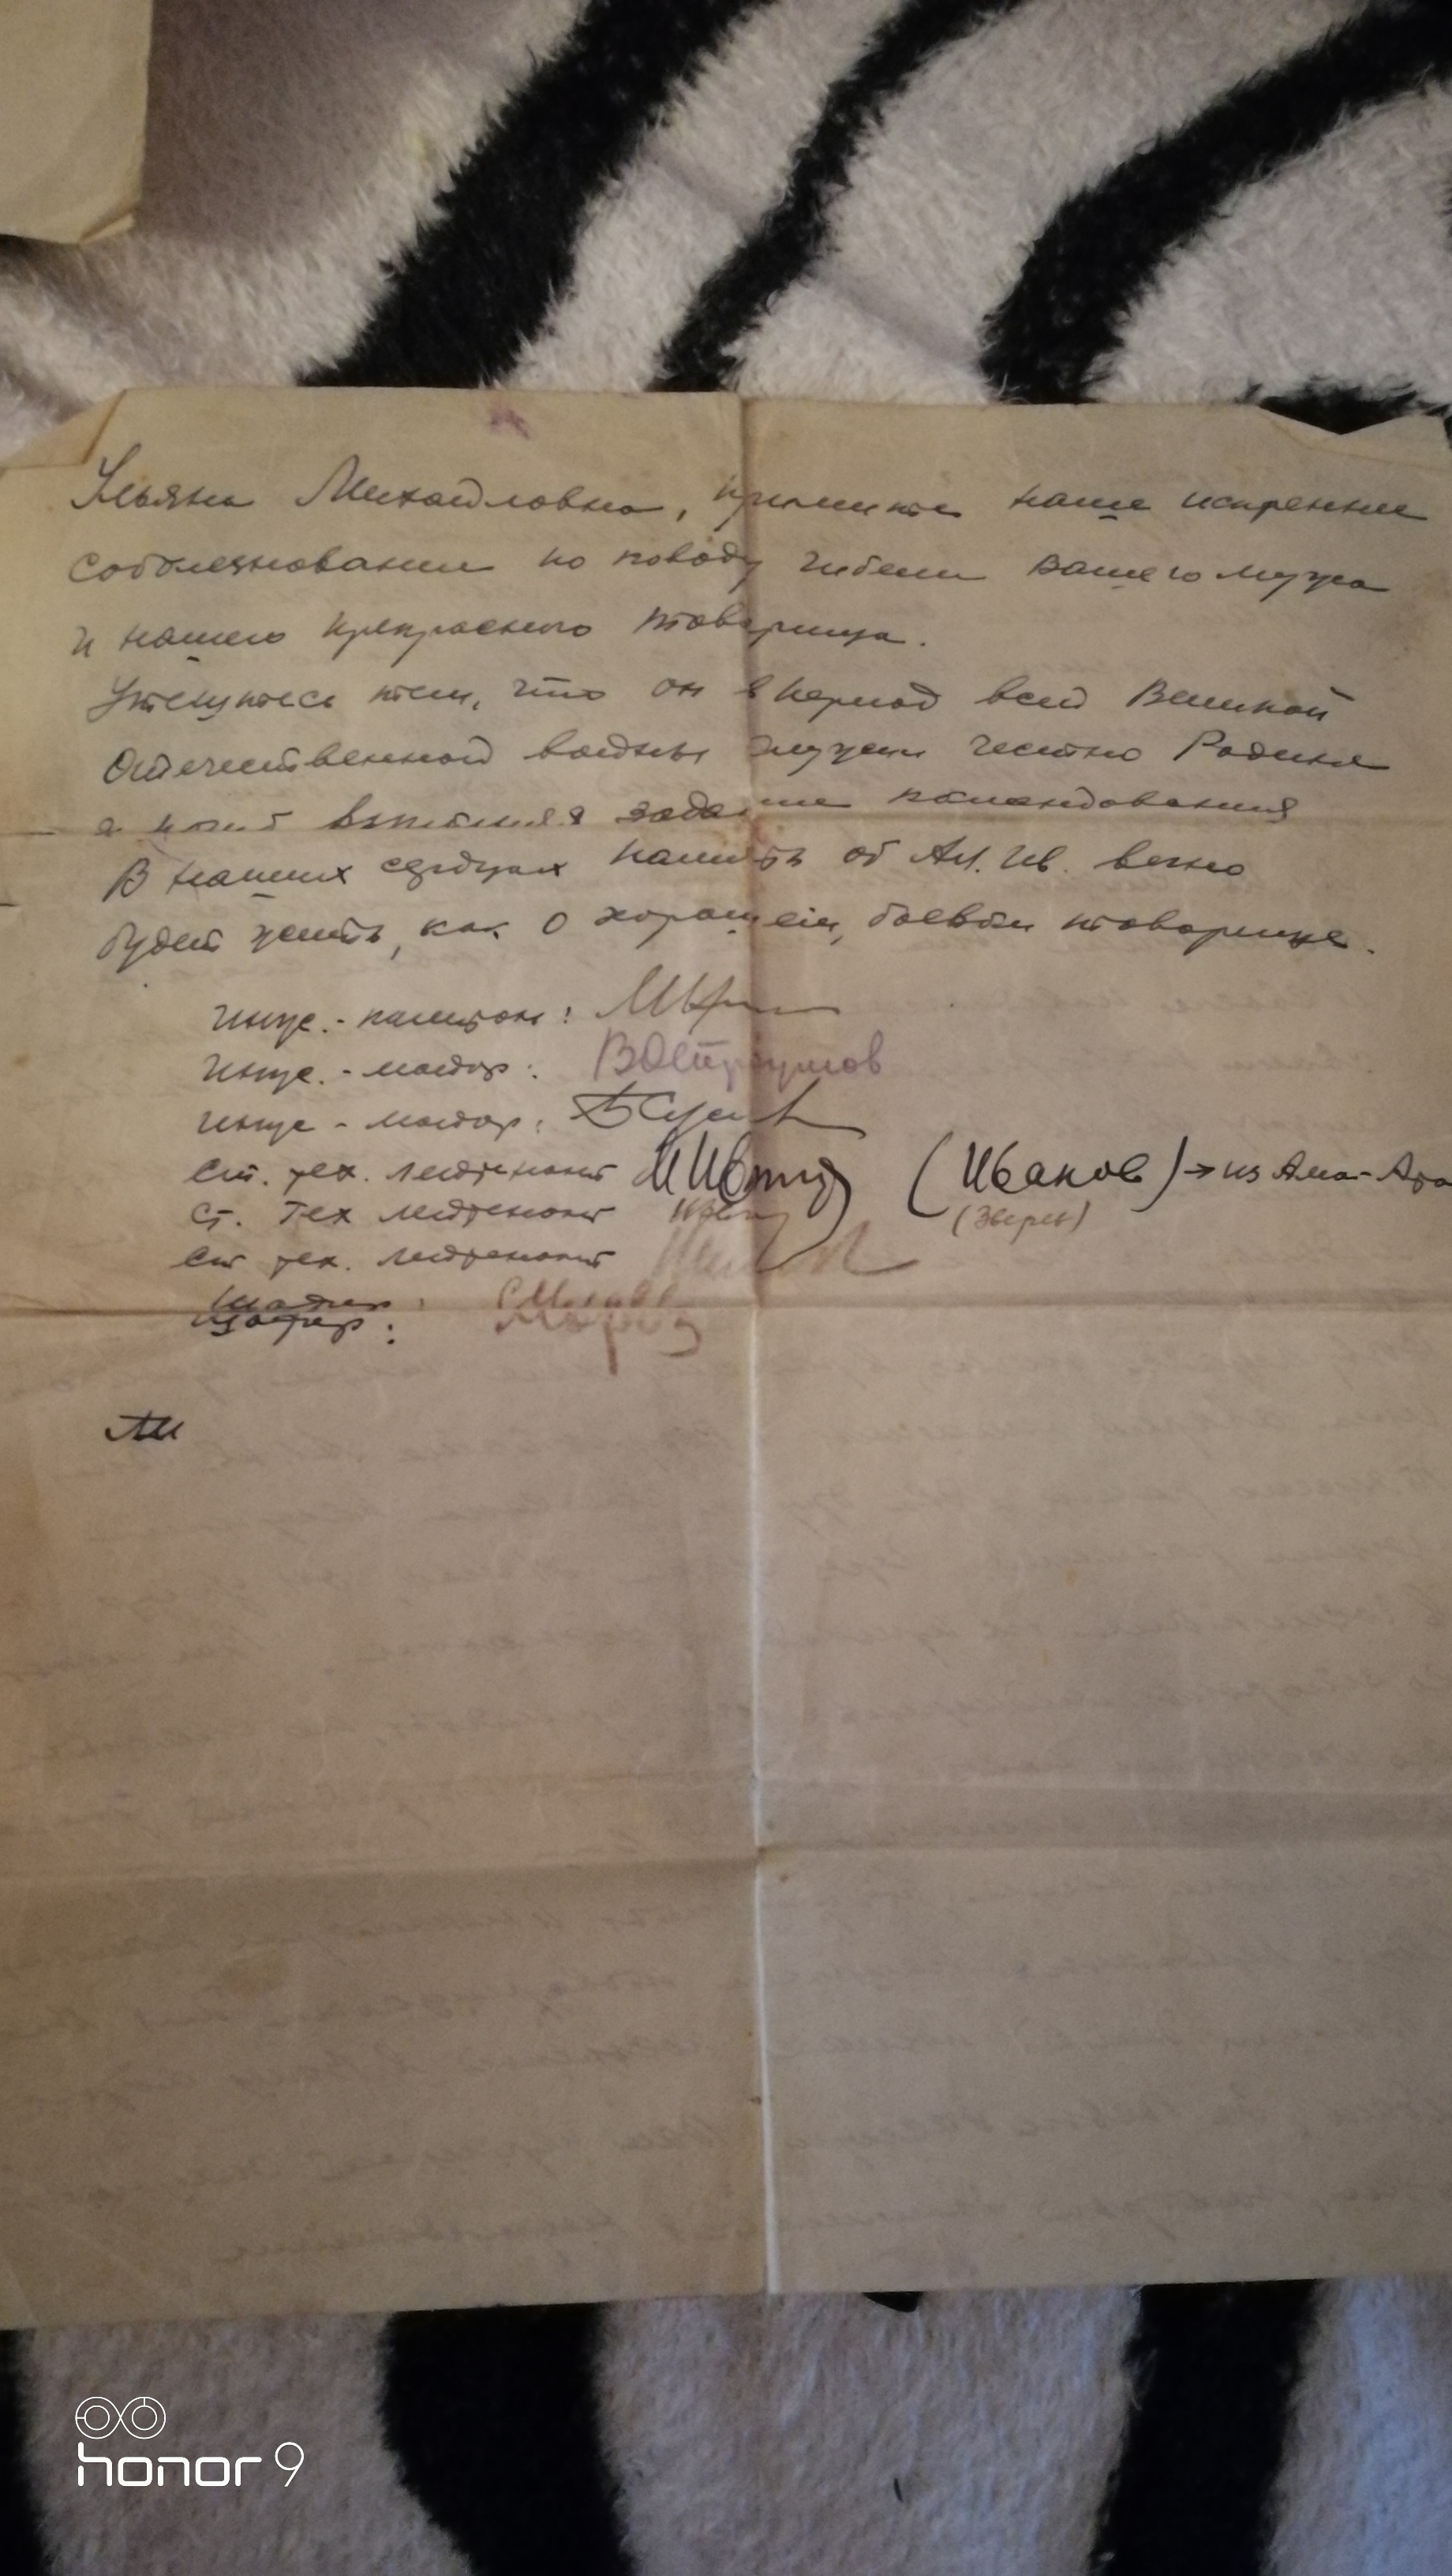 Ульяна Михайловна, примите наше искренние
соболезновании по поводу гибели вашего мужа
и нашего прекрасного товарища.
Утешутесь тем, что он в период всей Великой
Отечественной войны служил честно Родине
а погиб выполняя задание командования
В наших сердцах память об Ал. Ив. вечно
будет жить, как о хорошем, боевом товарище.
Инж.-капитан:
Инж.-майор: ВОстроумов
Инж-майор:
Ст. тех. лейтенант (Иванов) → из Алма-Ата
Ст. Тех лейтенант (Зверев)
Ст тех. лейтенант
Шофер:
Шофер:
АИ
honor 9